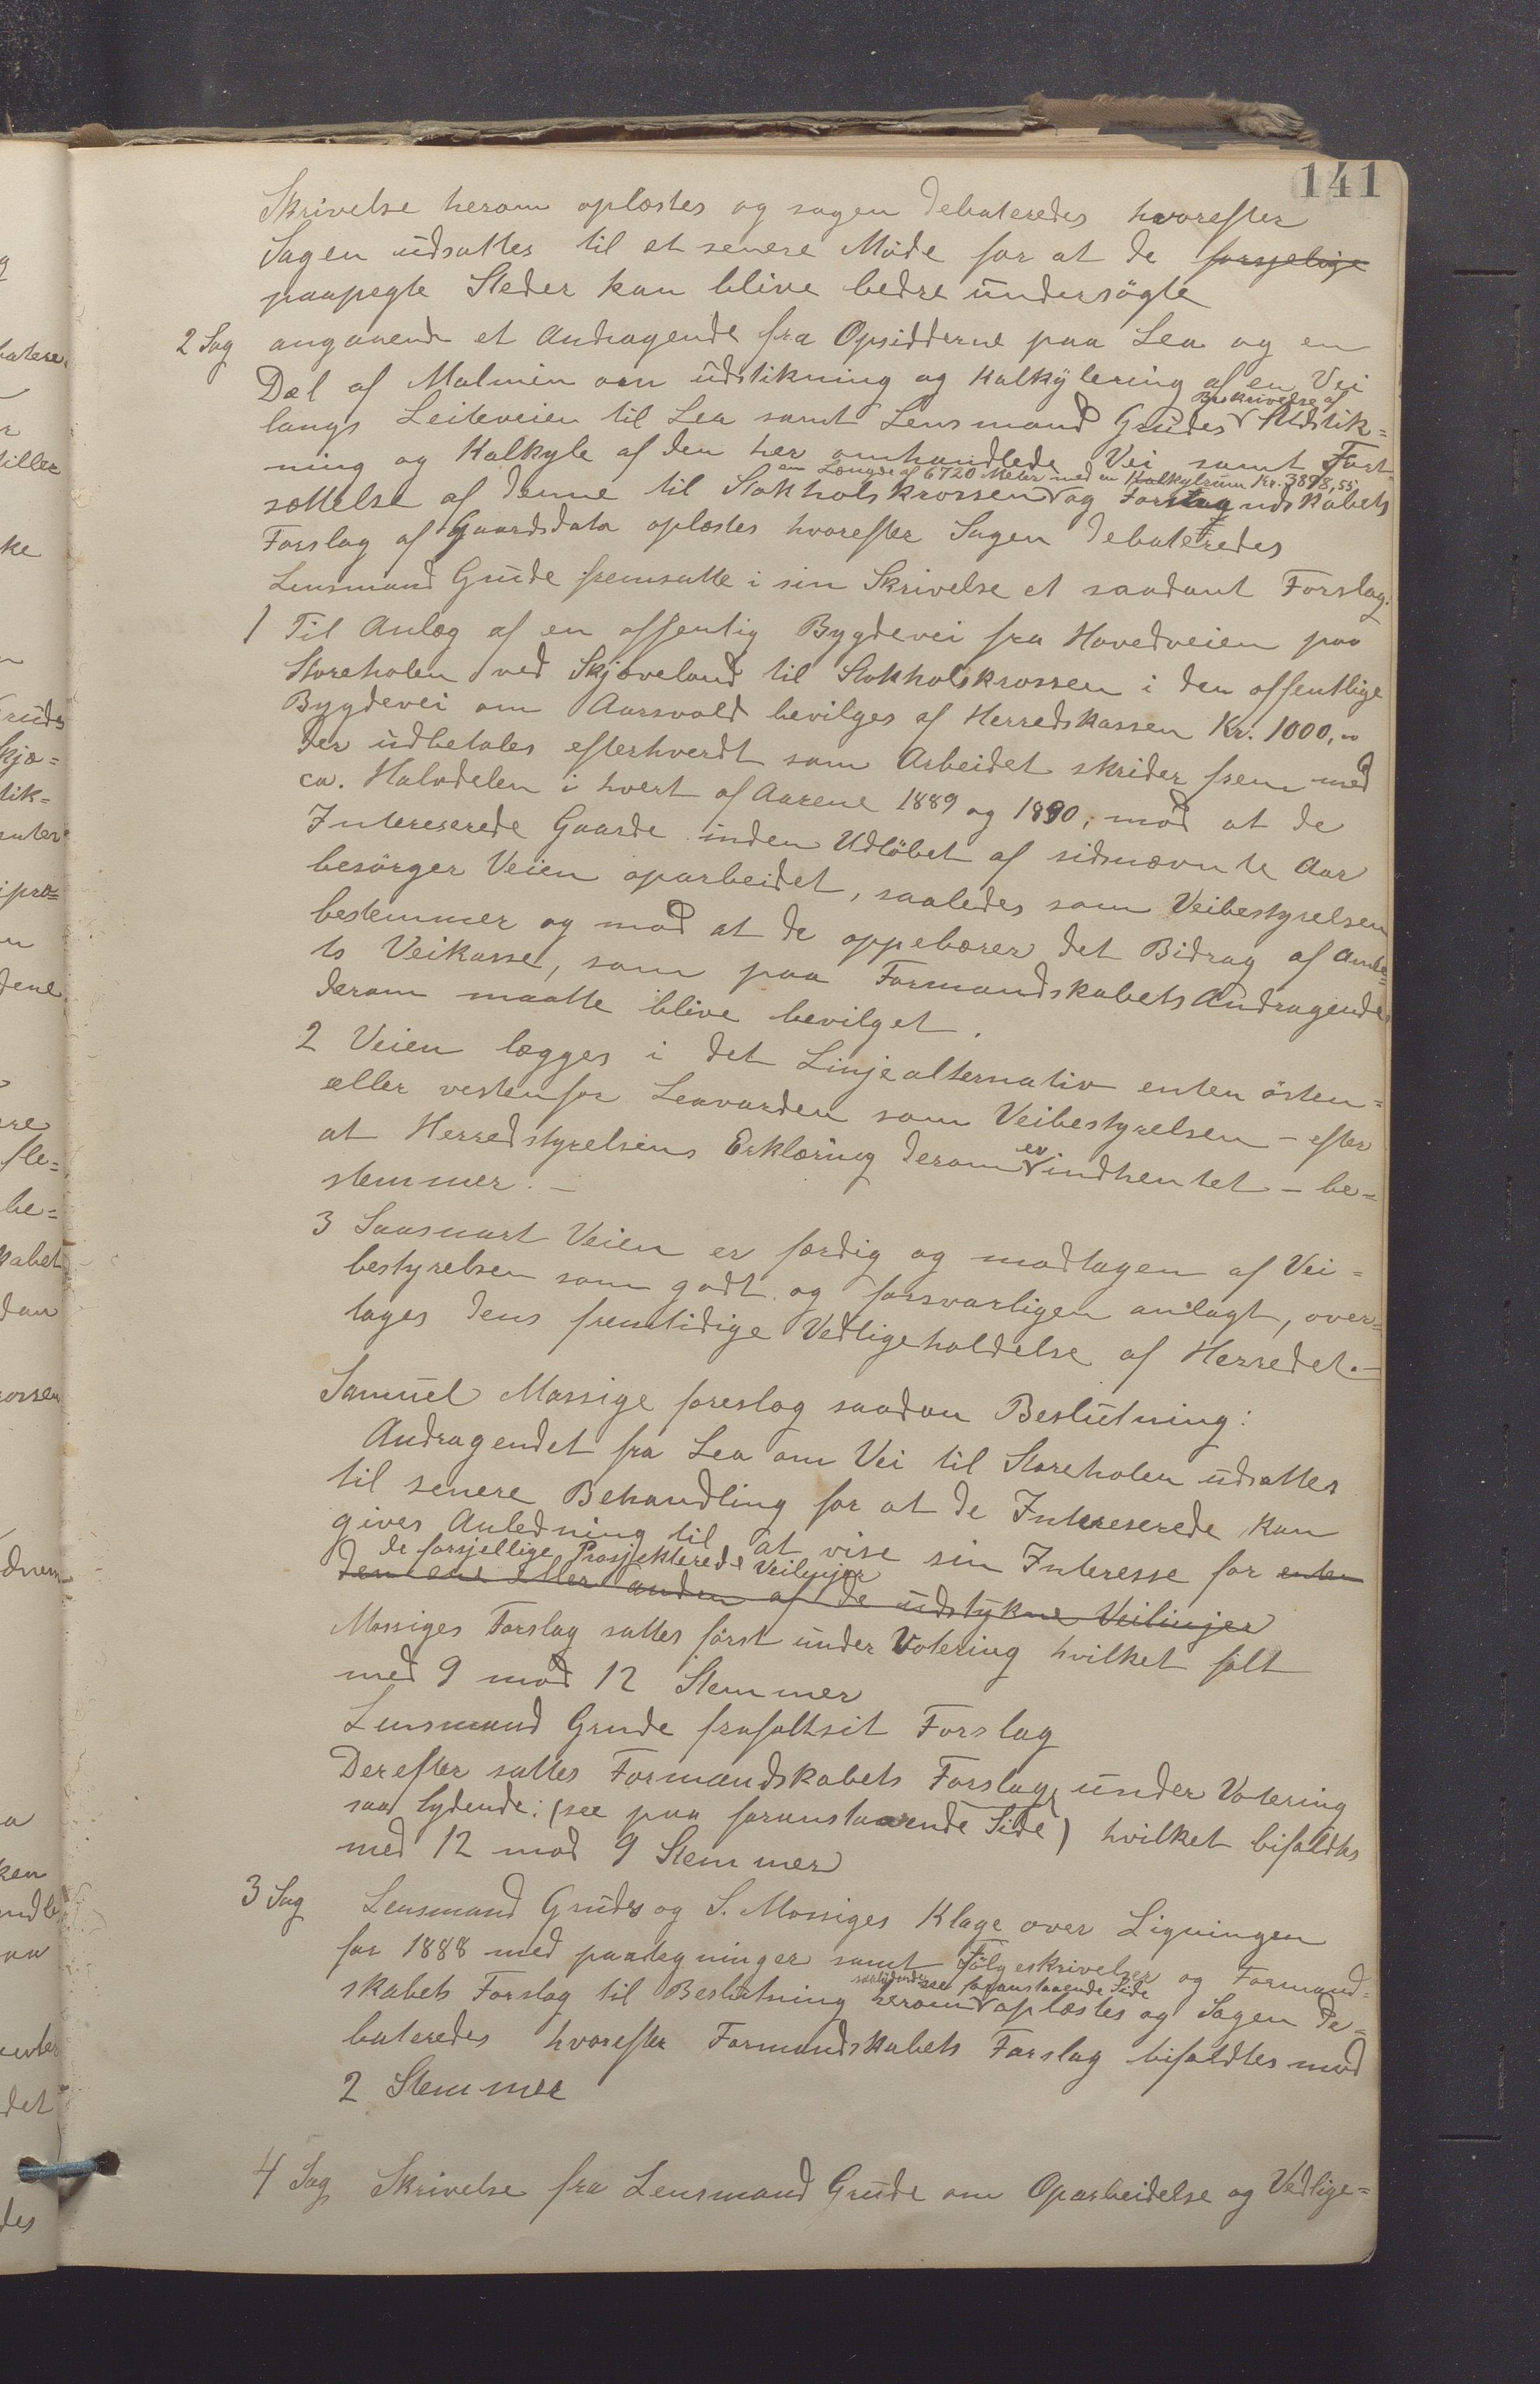 141
Skrivelse herom oplæstes og sagen debateredes hvorefter
Sagen udsattes til et senere Møde for at de forsjelige
paapegte Steder kan blive bedre undersøgte
2 Sag angaaende et Andragende fra Opsidderne paa Lea og en
Del af Malmin om udstikning og Kalkylering af en Vei
langs Leiteveien til Lea samt Lensmand Grudes Beskrivelse af Udstik=
ning og Kalkyle af den her omhandlede Vei samt Fort-
sættelse af denne til Stokholskrossen en Længde af 6720 Meter med en Kalkylsum Kr. 3898,55 og Formandskabets
Forslag af Gaardsdato oplæstes hvorefter Sagen debateredes
Lensmand Grude fremsatte i sin Skrivelse et saadant Forslag:
1 Til Anlæg af en offentlig Bygdevei fra Hovedveien paa
Storeholen ved Skjæveland til Stokholskrossen i den offentlige
Bygdevei om Aarsvold bevilges af Herredskassen Kr. 1000,00
der udbetales efterhverdt som Arbeidet skrider frem med
ca. Halvdelen i hvert af Aarene 1889 og 1890, mod at de
Intereserede Gaarde inden Udløbet af sidnævnte Aar
besørger Veien oparbeidet, saaledes som Veibestyrelsen
bestemmer og mod at de oppebærer det Bidrag af Amte=
ts Veikasse, som paa Formandskabets Andragende
derom maatte blive bevilget.
2 Veien lægges i det Linjealternativ enten østen=
eller vestenfor Leavarden som Veibestyrelsen – efter
at Herredstyrelsens Erklæring derom er indhentet – be=
stemmer. –
3 Saasnart Veien er færdig og modtagen af Vei=
bestyrelsen som godt og forsvarligen anlagt, over=
tages dens fremtidige Vedligeholdelse af Herredet. –
Samuel Massige foreslog saadan Beslutning:
Andragendet fra Lea om Vei til Storeholen udsattes
til senere Behandling for at de Intereserede kan
gives Anledning til at vise sin Interesse for enten
de forsjellige Prosjekterede Veilinjer
den ene eller anden af de udstukne Veilinjer
Massiges Forslag sattes først under Votering hvilket falt
med 9 mod 12 Stemmer
Lensmand Grude frafalt sit Forslag
Derefter sattes Formandskabets Forslag under Votering
saa lydende: (see paa foranstaaende Side) hvilket bifaldtes
med 12 mod 9 Stemmer
3 Sag Lensmand Grudes og S. Massiges Klage over Ligningen
for 1888 med paategninger samt Følgeskrivelser og Formand=
skabets Forslag til Beslutning herom saalydende see foranstaaende Side oplæstes og Sagen de=
bateredes hvorefter Formandskabets Forslag bifaldtes mod
2 Stemmer
4 Sag Skrivelse fra Lensmand Grude om Oparbeidelse og Vedlige=